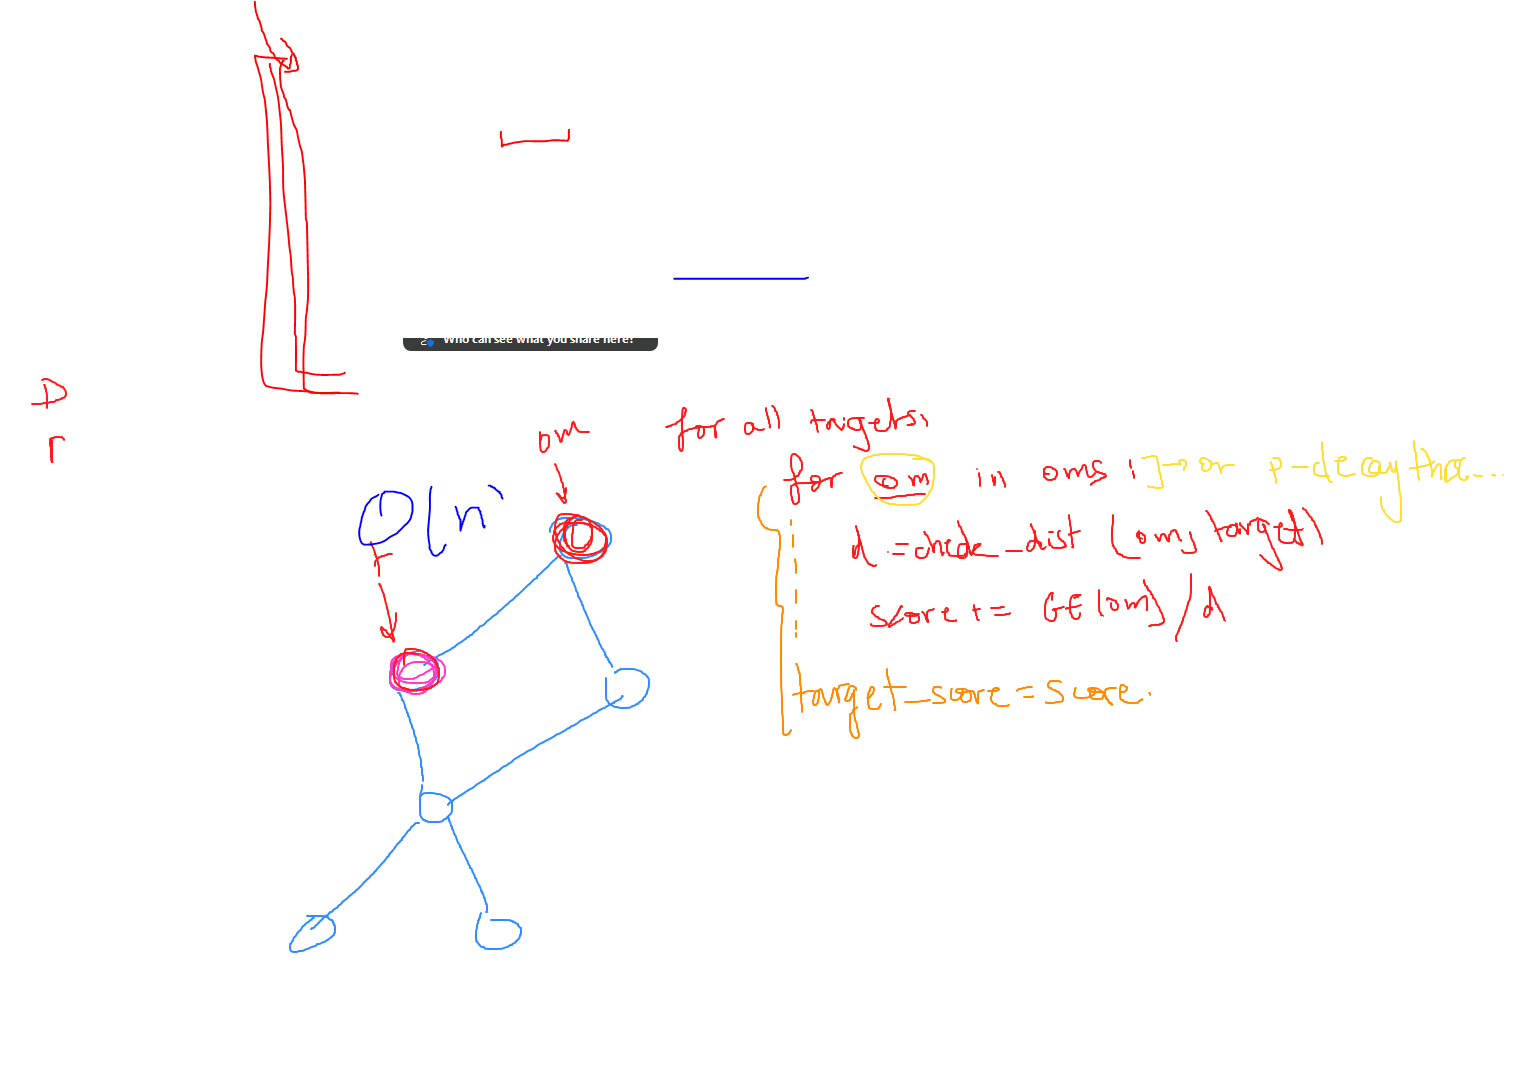 Who can see what you share here?
D
r
om
for all targets:
for om in oms : ]→ or p-decay tha...
O(n)
T
d = check_dist (om, target)
score += GE(om)/d
target_score = score.